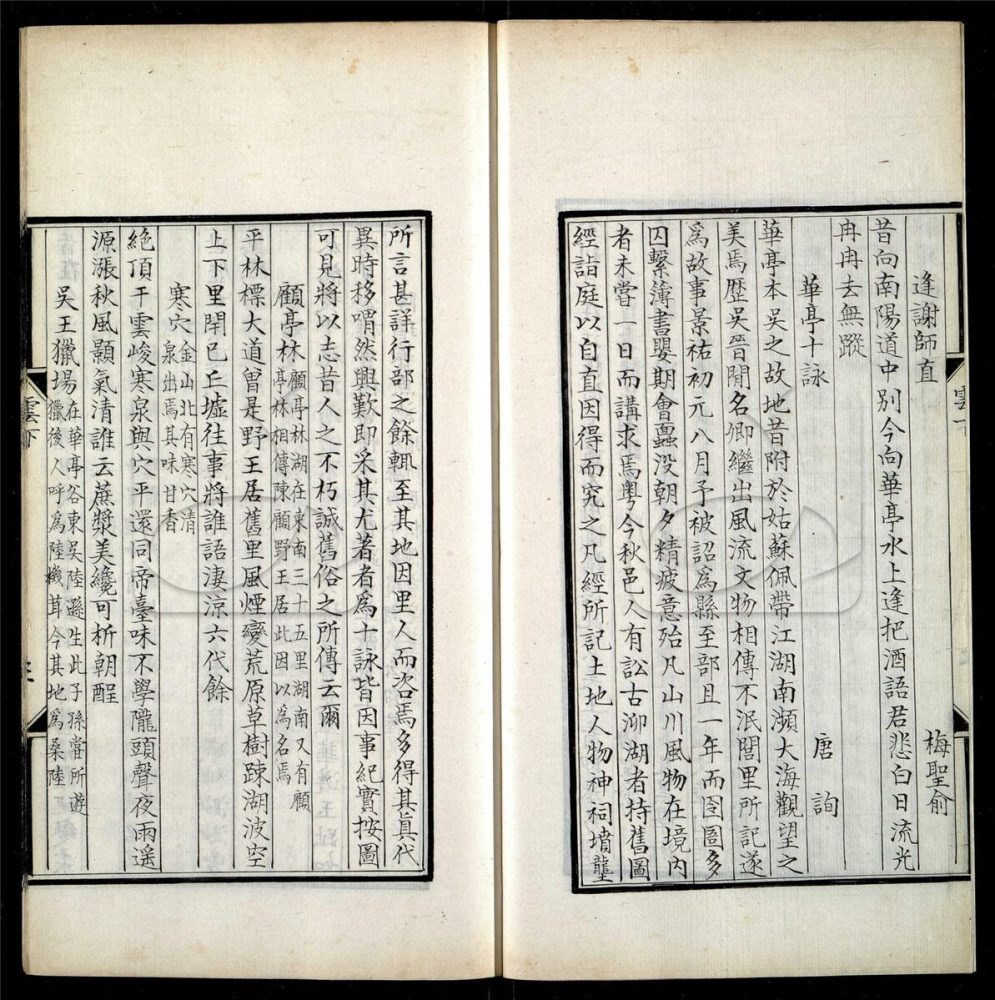 逢謝師直　梅聖俞
昔向南陽道中別今向華亭水上逢把酒語君悲白日流光
冉冉去無蹤
華亭十詠　唐詢
華亭本吳之故地昔附於姑蘇佩帶江湖南瀕大海觀望之
美焉歷吳晉閒名卿繼出風流文物相傳不泯閭里所記遂
爲故事景祐初元八月予被詔爲縣至部且一年而囹圄多
囚繫簿書嬰期會蠱没朝夕精疲意殆凡山川風物在境內
者未嘗一日而講求焉粵今秋邑人有訟古泖湖者持舊圖
經詣庭以自直因得而究之凡經所記土地人物神祠墳壟
所言甚詳行部之餘輒至其地因里人而咨焉多得其眞代
異時移喟然興歎即采其尤著者爲十詠皆因事紀實按圖
可見將以志昔人之不朽誠舊俗之所傳云爾
顧亭林顧亭林湖在東南三十五里湖南又有顧
亭林相傳陳顧野王居此因以為名焉
平林標大道曾是野王居舊里風煙變荒原草樹踈湖波空
上下里閈已丘墟往事將誰語淒涼六代餘
寒穴金山北有寒穴清
泉出焉其味甘香
絶頂干雲峻寒泉與穴平還同帝臺味不學隴頭聲夜雨遥
源漲秋風顥氣清誰云蔗漿美纔可析朝酲
吳王獵場在華亭谷東吳陸遜生此子孫嘗所遊
獵後人呼爲陸機茸今其地爲桑陸
雲下